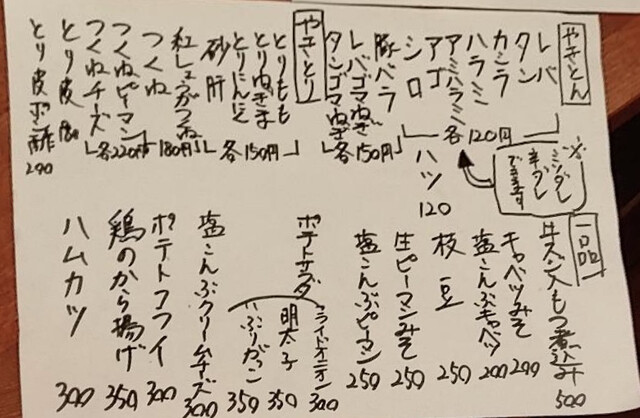 やきとん
レバ
タン
カシラ
ハラミ
アミハラミ
アゴ
シロ
各120円
ハツ
120
※ミソダレ
辛ダレ
できます
豚バラ
レバゴマねぎ
タンゴマねぎ
各150円
やきとり
とりもも
とりねぎま
とりにんにく
砂肝
各150円
紅しょうがつくね
つくね
180円
つくねピーマン
つくねチーズ
各220円
とり皮
とり皮ポン酢
200
一品
牛スジ入もつ煮込み
500
キャベツみそ
200
塩こんぶキャベツ
200
枝豆
250
生ピーマンみそ
250
塩こんぶピーマン
250
ポテトサラダ
フライドオニオン
300
明太子
350
いぶりがっこ
350
塩こんぶクリームチーズ
300
ポテトフライ
300
鶏のから揚げ
350
ハムカツ
300